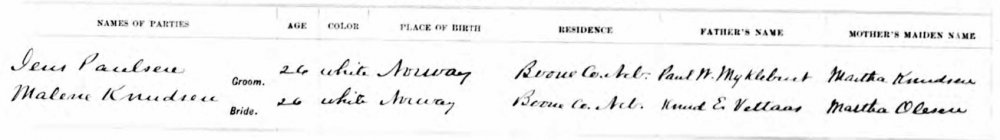 NAMES OF PARTIES AGE COLOR PLACE OF BIRTH RESIDENCE FATHER'S NAME MOTHER'S MAIDEN NAME
Jens Paulsen Groom. 26 white Norway Boone Co. Neb. Paul W. Myklebust Martha Knudsen
Malene Knudsen Bride. 26 white Norway Boone Co. Neb. Knud E. Vellaas Martha Olesen